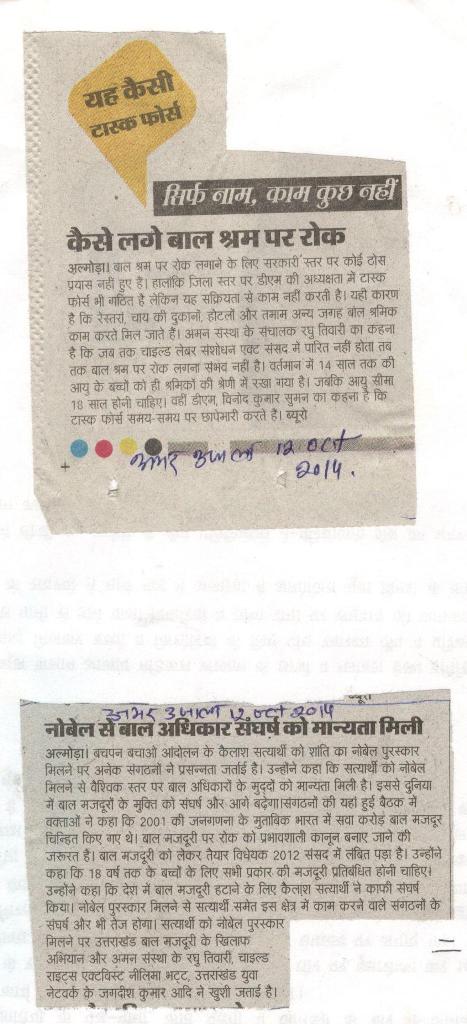 यह कैसी
टास्क फोर्स
सिर्फ नाम, काम कुछ नहीं
कैसे लगे बाल श्रम पर रोक
अल्मोड़ा। बाल श्रम पर रोक लगाने के लिए सरकारी स्तर पर कोई ठोस
प्रयास नहीं हुए हैं। हालांकि जिला स्तर पर डीएम की अध्यक्षता में टास्क
फोर्स भी गठित है लेकिन यह सक्रियता से काम नहीं करती है। यही कारण
है कि रेस्तरां, चाय की दुकानों, होटलों और तमाम अन्य जगह बाल श्रमिक
काम करते मिल जाते हैं। अमन संस्था के संचालक रघु तिवारी का कहना
है कि जब तक चाइल्ड लेबर संशोधन एक्ट संसद में पारित नहीं होता तब
तक बाल श्रम पर रोक लगना संभव नहीं है। वर्तमान में 14 साल तक की
आयु के बच्चों को ही श्रमिकों की श्रेणी में रखा गया है। जबकि आयु सीमा
18 साल होनी चाहिए। वहीं डीएम, विनोद कुमार सुमन का कहना है कि
टास्क फोर्स समय-समय पर छापेमारी करते हैं। ब्यूरो
अमर उजाला 12 Oct
2014.
ब्यूरो
अमर उजाला 12 Oct 2014
नोबेल से बाल अधिकार संघर्ष को मान्यता मिली
अल्मोड़ा। बचपन बचाओ आंदोलन के कैलाश सत्यार्थी को शांति का नोबेल पुरस्कार
मिलने पर अनेक संगठनों ने प्रसन्नता जताई है। उन्होंने कहा कि सत्यार्थी को नोबेल
मिलने से वैश्विक स्तर पर बाल अधिकारों के मुद्दों को मान्यता मिली है। इससे दुनिया
में बाल मजदूरों के मुक्ति को संघर्ष और आगे बढ़ेगा।संगठनों की यहां हुई बैठक में
वक्ताओं ने कहा कि 2001 की जनगणना के मुताबिक भारत में सवा करोड़ बाल मजदूर
चिन्हित किए गए थे। बाल मजदूरी पर रोक को प्रभावशाली कानून बनाए जाने की
जरूरत है। बाल मजदूरी को लेकर तैयार विधेयक 2012 संसद में लंबित पड़ा है। उन्होंने
कहा कि 18 वर्ष तक के बच्चों के लिए सभी प्रकार की मजदूरी प्रतिबंधित होनी चाहिए।
उन्होंने कहा कि देश में बाल मजदूरी हटाने के लिए कैलाश सत्यार्थी ने काफी संघर्ष
किया। नोबेल पुरस्कार मिलने से सत्यार्थी समेत इस क्षेत्र में काम करने वाले संगठनों के
संघर्ष और भी तेज होगा। सत्यार्थी को नोबेल पुरस्कार
मिलने पर उत्तराखंड बाल मजदूरी के खिलाफ
अभियान और अमन संस्था के रघु तिवारी, चाइल्ड
राइट्स एक्टविस्ट नीलिमा भट्ट, उत्तराखंड युवा
नेटवर्क के जगदीश कुमार आदि ने खुशी जताई है।